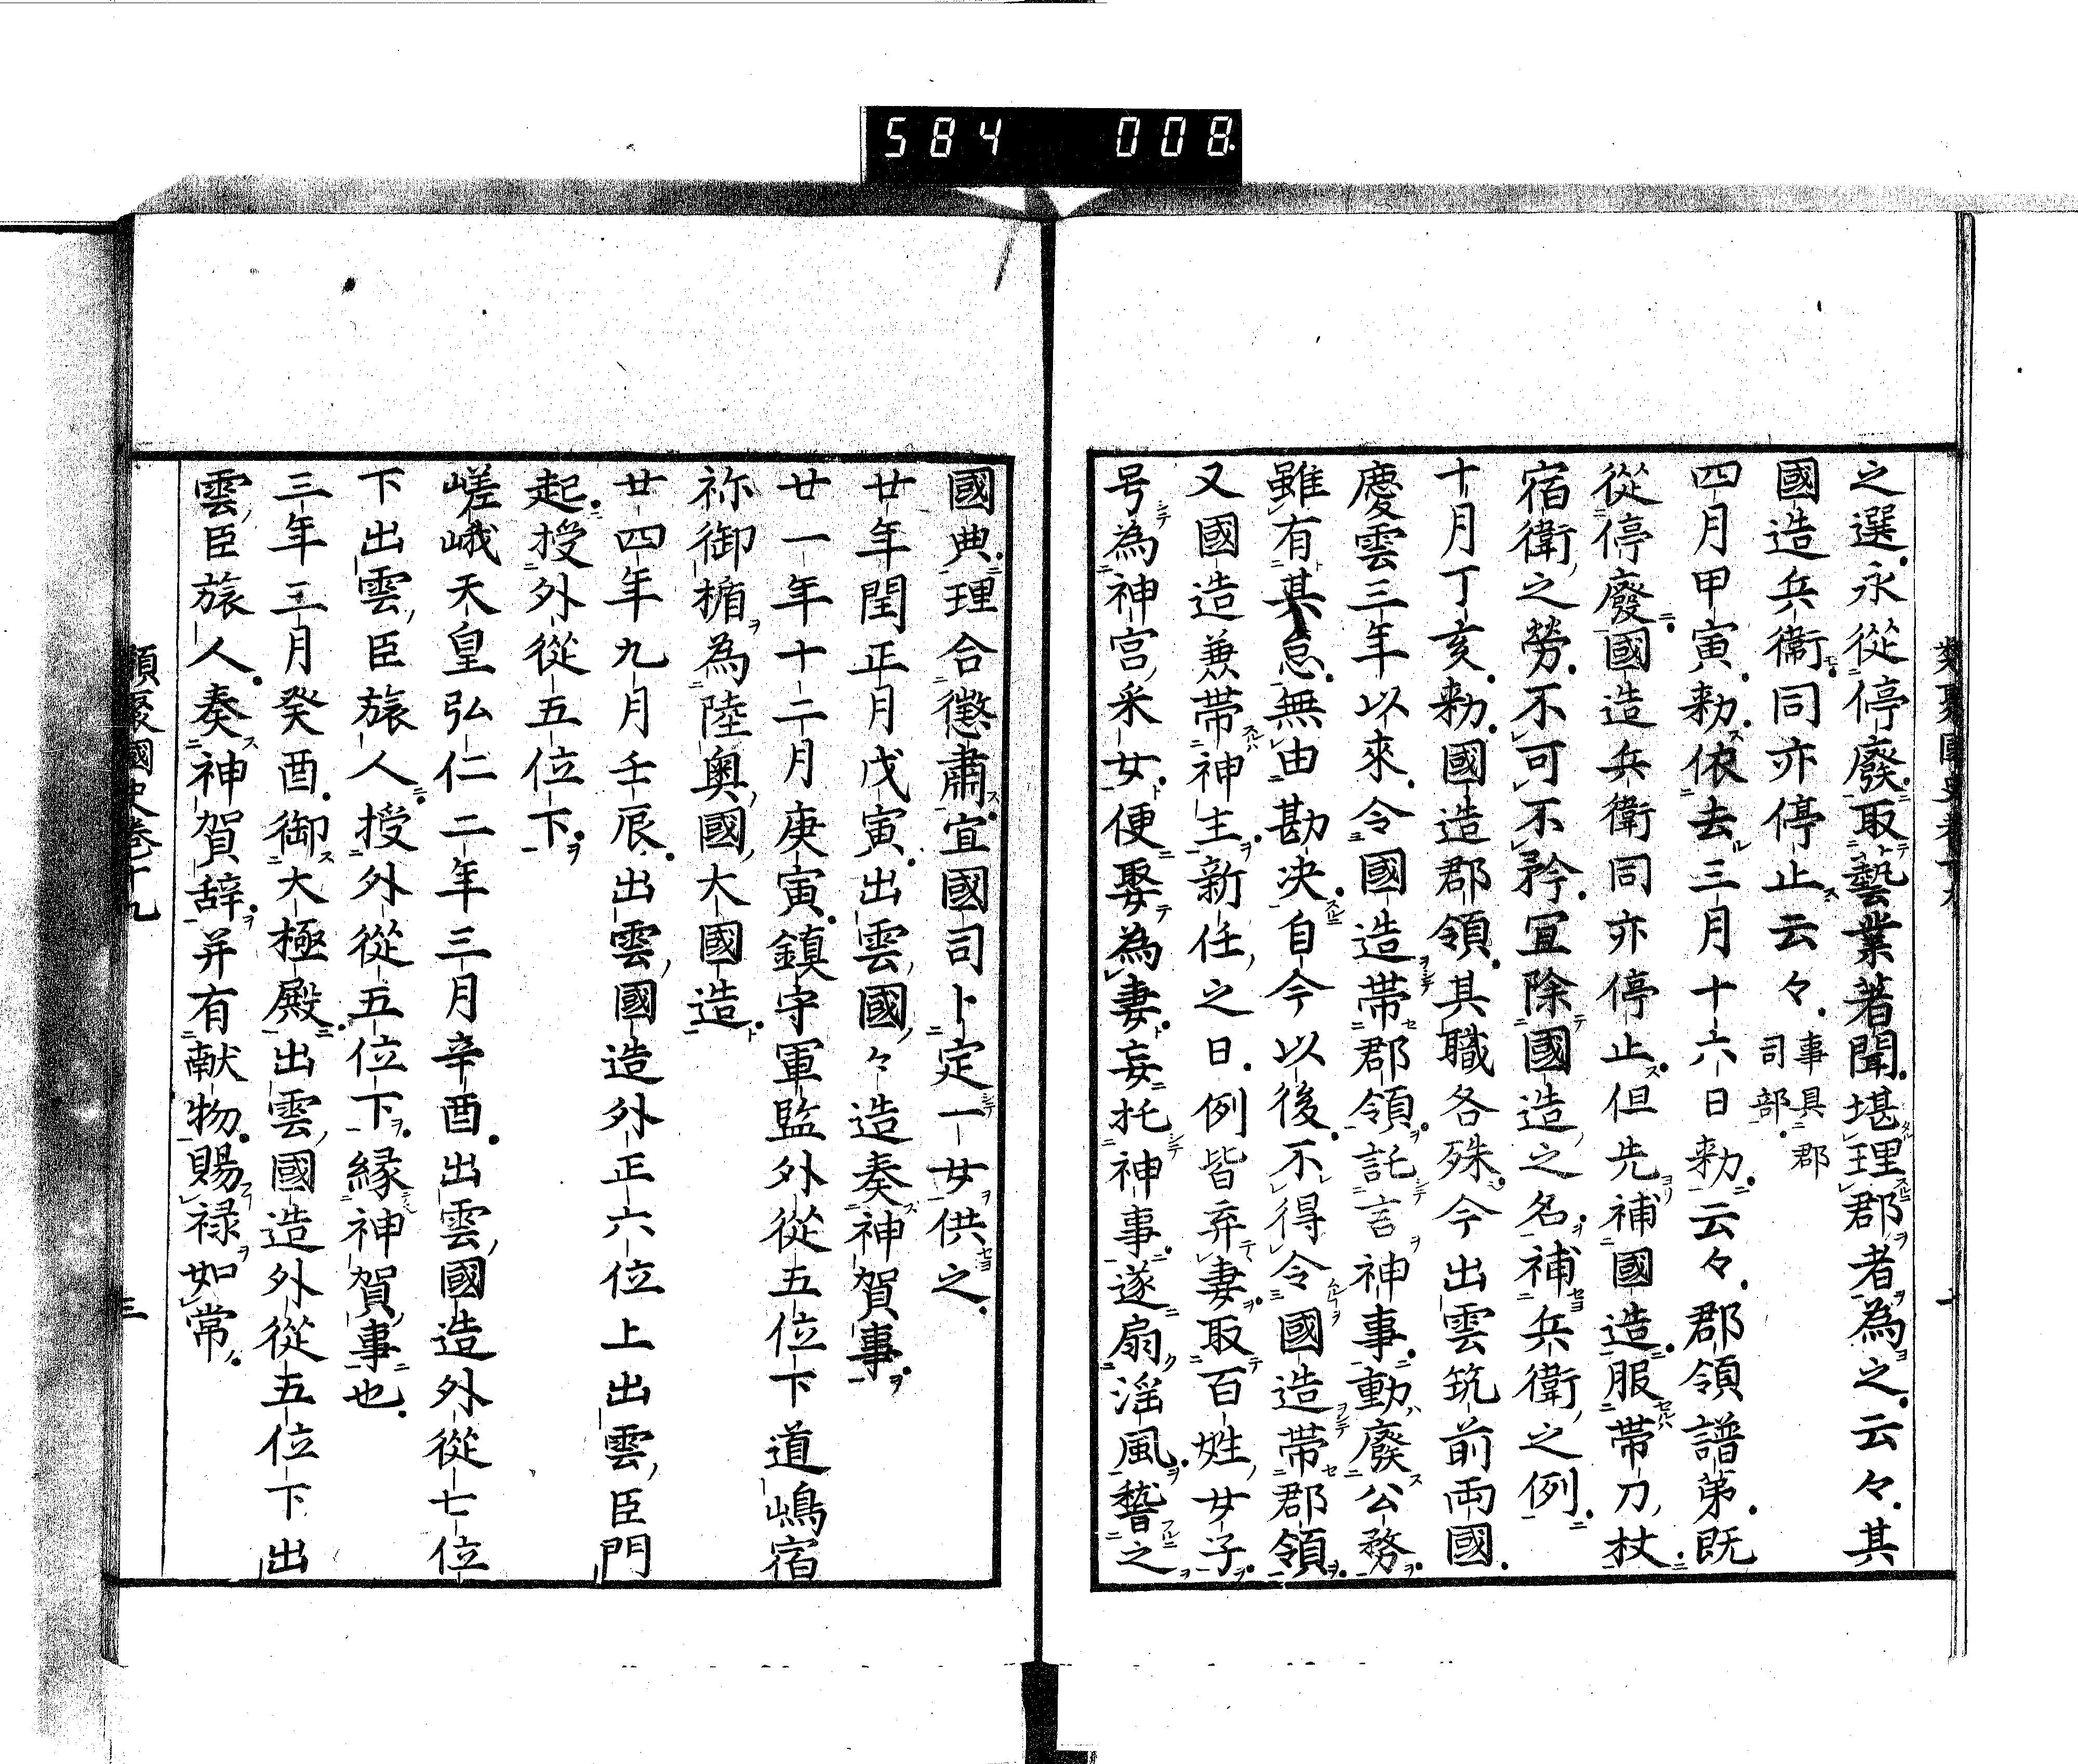 584 008
之選永從停廢取藝業著聞堪理郡者為之云々其
國造兵衞同亦停止云々事具郡司部
四月甲寅勅依去三月十六日勅云々郡領譜第既
從停廢國造兵衛同亦停止但先補國造服帶刀杖
宿衛之勞不可不矜宜除國造之名補兵衛之例
十月丁亥勅國造郡領其職各殊今出雲筑前両國
慶雲三年以來令國造帶郡領託言神事動廢公務
雖有其怠無由勘决自今以後不得令國造帶郡領
又國造兼帶神主新任之日例皆弃妻取百姓女子
号為神宮采女便娶為妻妄托神事遂扇淫風稽之
國典理合懲肅宜國司卜定一女供之
廿年閏正月戊寅出雲國々造奏神賀事
廿一年十二月庚寅鎮守軍監外從五位下道嶋宿
祢御楯為陸奥國大國造
廿四年九月壬辰出雲國造外正六位上出雲臣門
起授外從五位下
嵯峨天皇弘仁二年三月辛酉出雲國造外從七位
下出雲臣旅人授外從五位下縁神賀事也
三年三月癸酉御大極殿出雲國造外從五位下出
雲臣旅人奏神賀辞并有献物賜禄如常
類聚國史卷十九 三